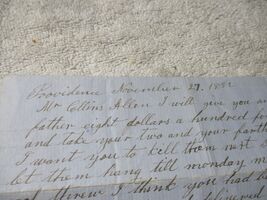 Providence November 27, 1852
Mr Ellins Allen I will give you and
father eight dollars a hundred for
and take your two and your farth
I want you to kill them next
let them hang till monday m
threw I think you had be